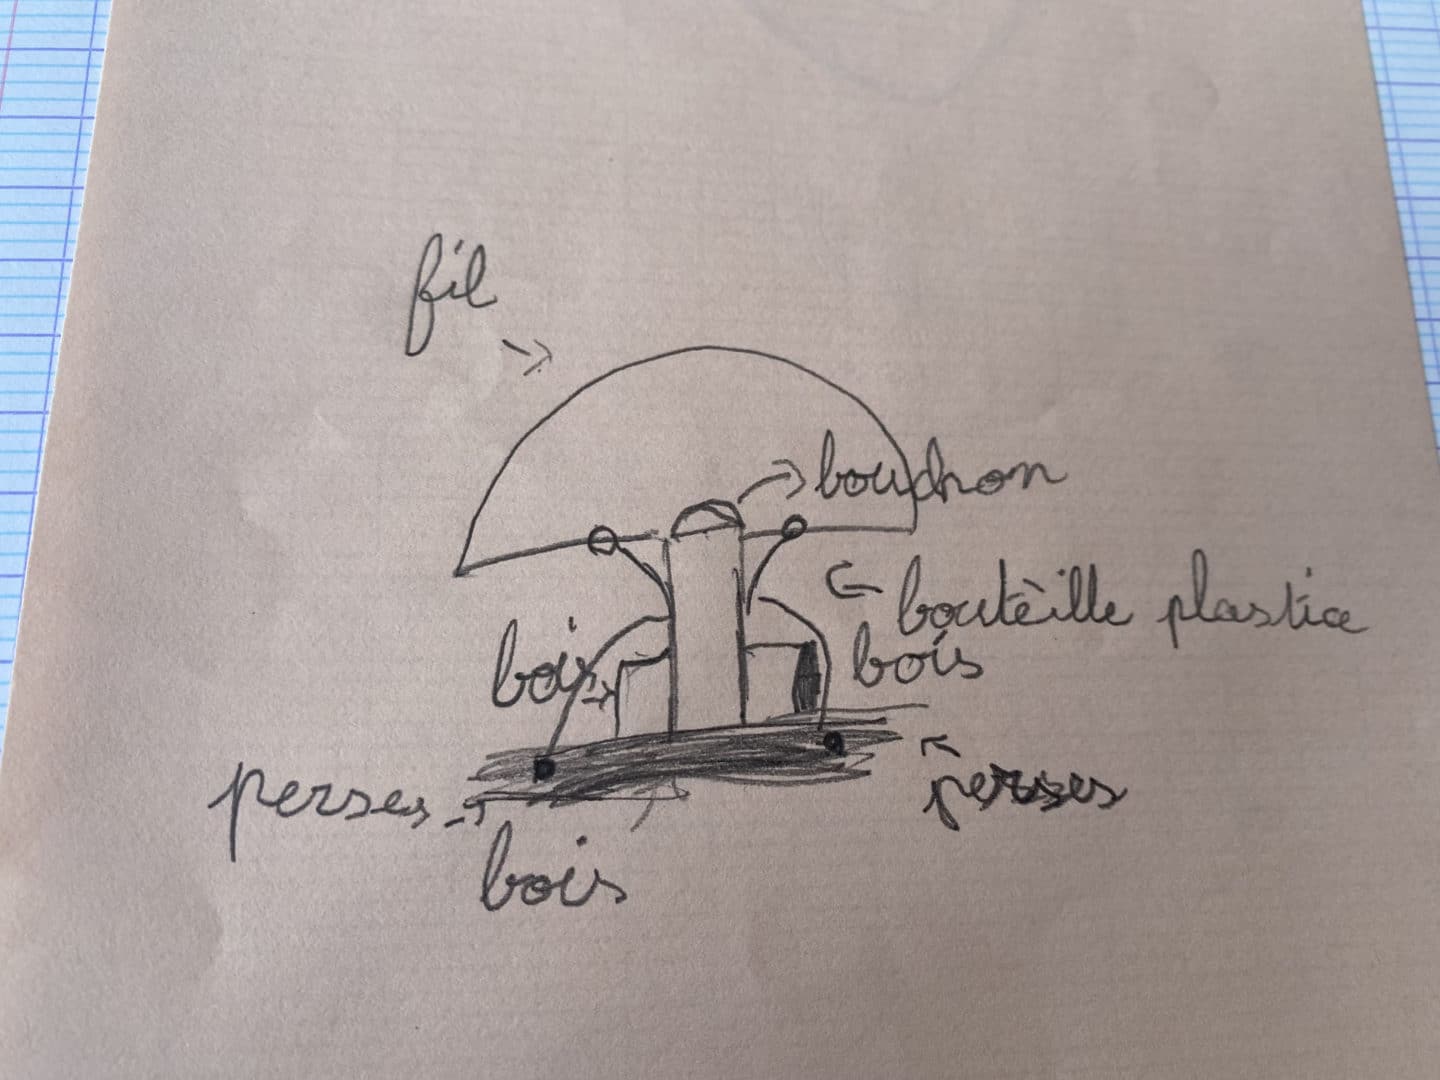 fil
bouchon
boutèille plastice
bois
bois
perses
perses
bois